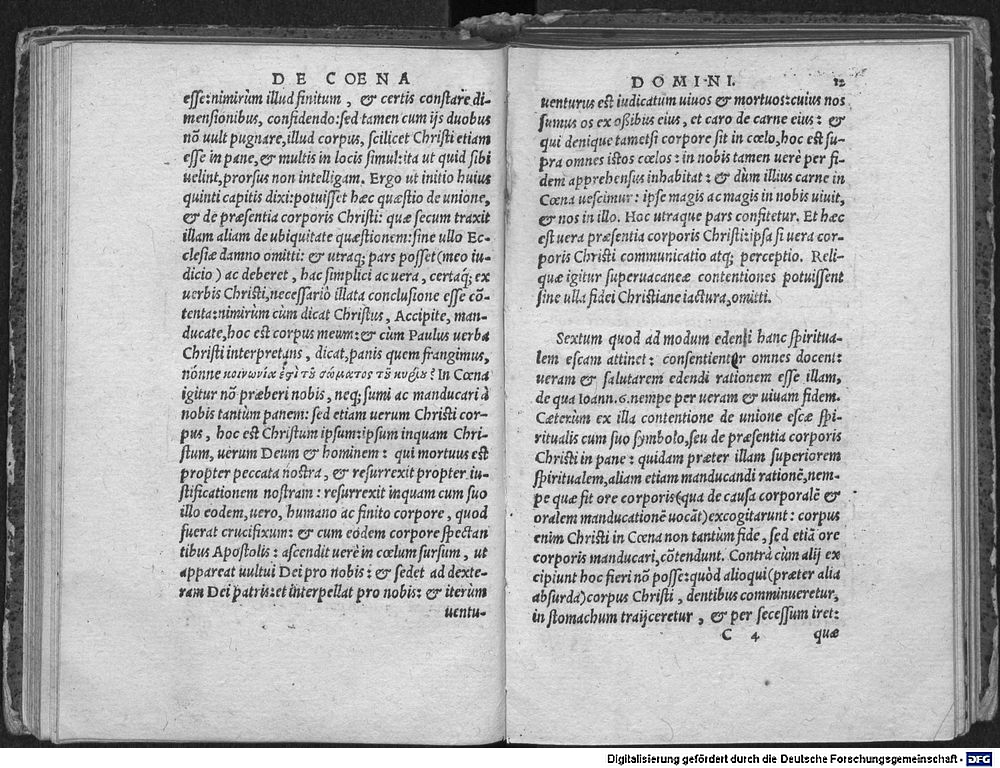 DE COENA
esse: nimirùm illud finitum, & certis constare di-
mensionibus, confidendo: sed tamen cum ijs duobus
nõ uult pugnare, illud corpus, scilicet Christi etiam
esse in pane, & multis in locis simul: ita ut quid sibi
uelint, prorsus non intelligam. Ergo ut initio huius
quinti capitis dixi: potuisset hæc quæstio de unione,
& de præsentia corporis Christi: quæ secum traxit
illam aliam de ubiquitate quæstionem: sine ullo Ec-
clesiæ damno omitti: & utraq; pars posset (meo iu-
dicio) ac deberet, hac simplici ac uera, certaq́; ex
uerbis Christi, necessariò illata conclusione esse cõ-
tenta: nimirùm cùm dicat Christus, Accipite, man-
ducate, hoc est corpus meum: & cùm Paulus uerba
Christi interpretans, dicat, panis quem frangimus,
nónne κοινωνία ἐςὶ τȣ͂ σώματος τȣ͂ κυρίȣ? In Cœna
igitur nõ præberi nobis, neq; sumi ac manducari à
nobis tantùm panem: sed etiam uerum Christi cor-
pus, hoc est Christum ipsum: ipsum inquam Chri-
stum, uerum Deum & hominem: qui mortuus est
propter peccata nostra, & resurrexit propter iu-
stificationem nostram: resurrexit inquam cum suo
illo eodem, uero, humano ac finito corpore, quod
fuerat crucifixum: & cum eodem corpore spectan
tibus Apostolis: ascendit uerè in cœlum sursum, ut
appareat uultui Dei pro nobis: & sedet ad dexte-
ram Dei patris: et interpellat pro nobis: & iterùm
uentu-
DOMINI. 12
uenturus est iudicatum uiuos & mortuos: cuius nos
sumus os ex oßibus eius, et caro de carne eius: &
qui denique tametsi corpore sit in cœlo, hoc est su-
pra omnes istos cœlos: in nobis tamen uerè per fi-
dem apprehensus inhabitat: & dùm illius carne in
Cœna uescimur: ipse magis ac magis in nobis uiuit,
& nos in illo. Hoc utraque pars confitetur. Et hæc
est uera præsentia corporis Christi: ipsa si uera cor-
poris Christi communicatio atq; perceptio. Reli-
quæ igitur superuacaneæ contentiones potuissent
sine ulla fidei Christianæ iactura, omitti.
Sextum quod ad modum edendi hanc spiritua-
lem escam attinet: consentienter omnes docent:
ueram & salutarem edendi rationem esse illam,
de qua Ioann. 6. nempe per ueram & uiuam fidem.
Cæterùm ex illa contentione de unione escæ spi-
ritualis cum suo symbolo, seu de præsentia corporis
Christi in pane: quidam præter illam superiorem
spiritualem, aliam etiam manducandi rationẽ, nem-
pe quæ fit ore corporis (qua de causa corporalẽ &
oralem manducationẽ uocãt) excogitarunt: corpus
enim Christi in Cœna non tantùm fide, sed etiã ore
corporis manducari, cõtendunt. Contrà cùm alij ex
cipiunt hoc fieri nõ posse: quòd alioqui (præter alia
absurda) corpus Christi, dentibus comminueretur,
in stomachum traijceretur, & per secessum iret:
C 4 quæ
Digitalisierung gefördert durch die Deutsche Forschungsgemeinschaft - DFG